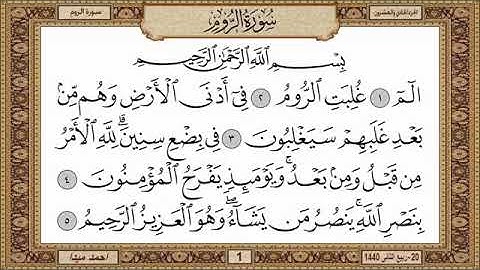 الجزء الحادي والعشرين
سورة الروم
سُورَةُ الرُّومِ
بِسْمِ اللَّهِ الرَّحْمَٰنِ الرَّحِيمِ
الٓمٓ ١ غُلِبَتِ ٱلرُّومُ ٢ فِىٓ أَدْنَى ٱلْأَرْضِ وَهُم مِّنۢ
بَعْدِ غَلَبِهِمْ سَيَغْلِبُونَ ٣ فِى بِضْعِ سِنِينَ ۗ لِلَّهِ ٱلْأَمْرُ
مِن قَبْلُ وَمِنۢ بَعْدُ ۚ وَيَوْمَئِذٍ يَفْرَحُ ٱلْمُؤْمِنُونَ ٤
بِنَصْرِ ٱللَّهِ ۚ يَنصُرُ مَن يَشَآءُ ۖ وَهُوَ ٱلْعَزِيزُ ٱلرَّحِيمُ ٥
20- ربيع الثاني 1440
1
احمد ميتا